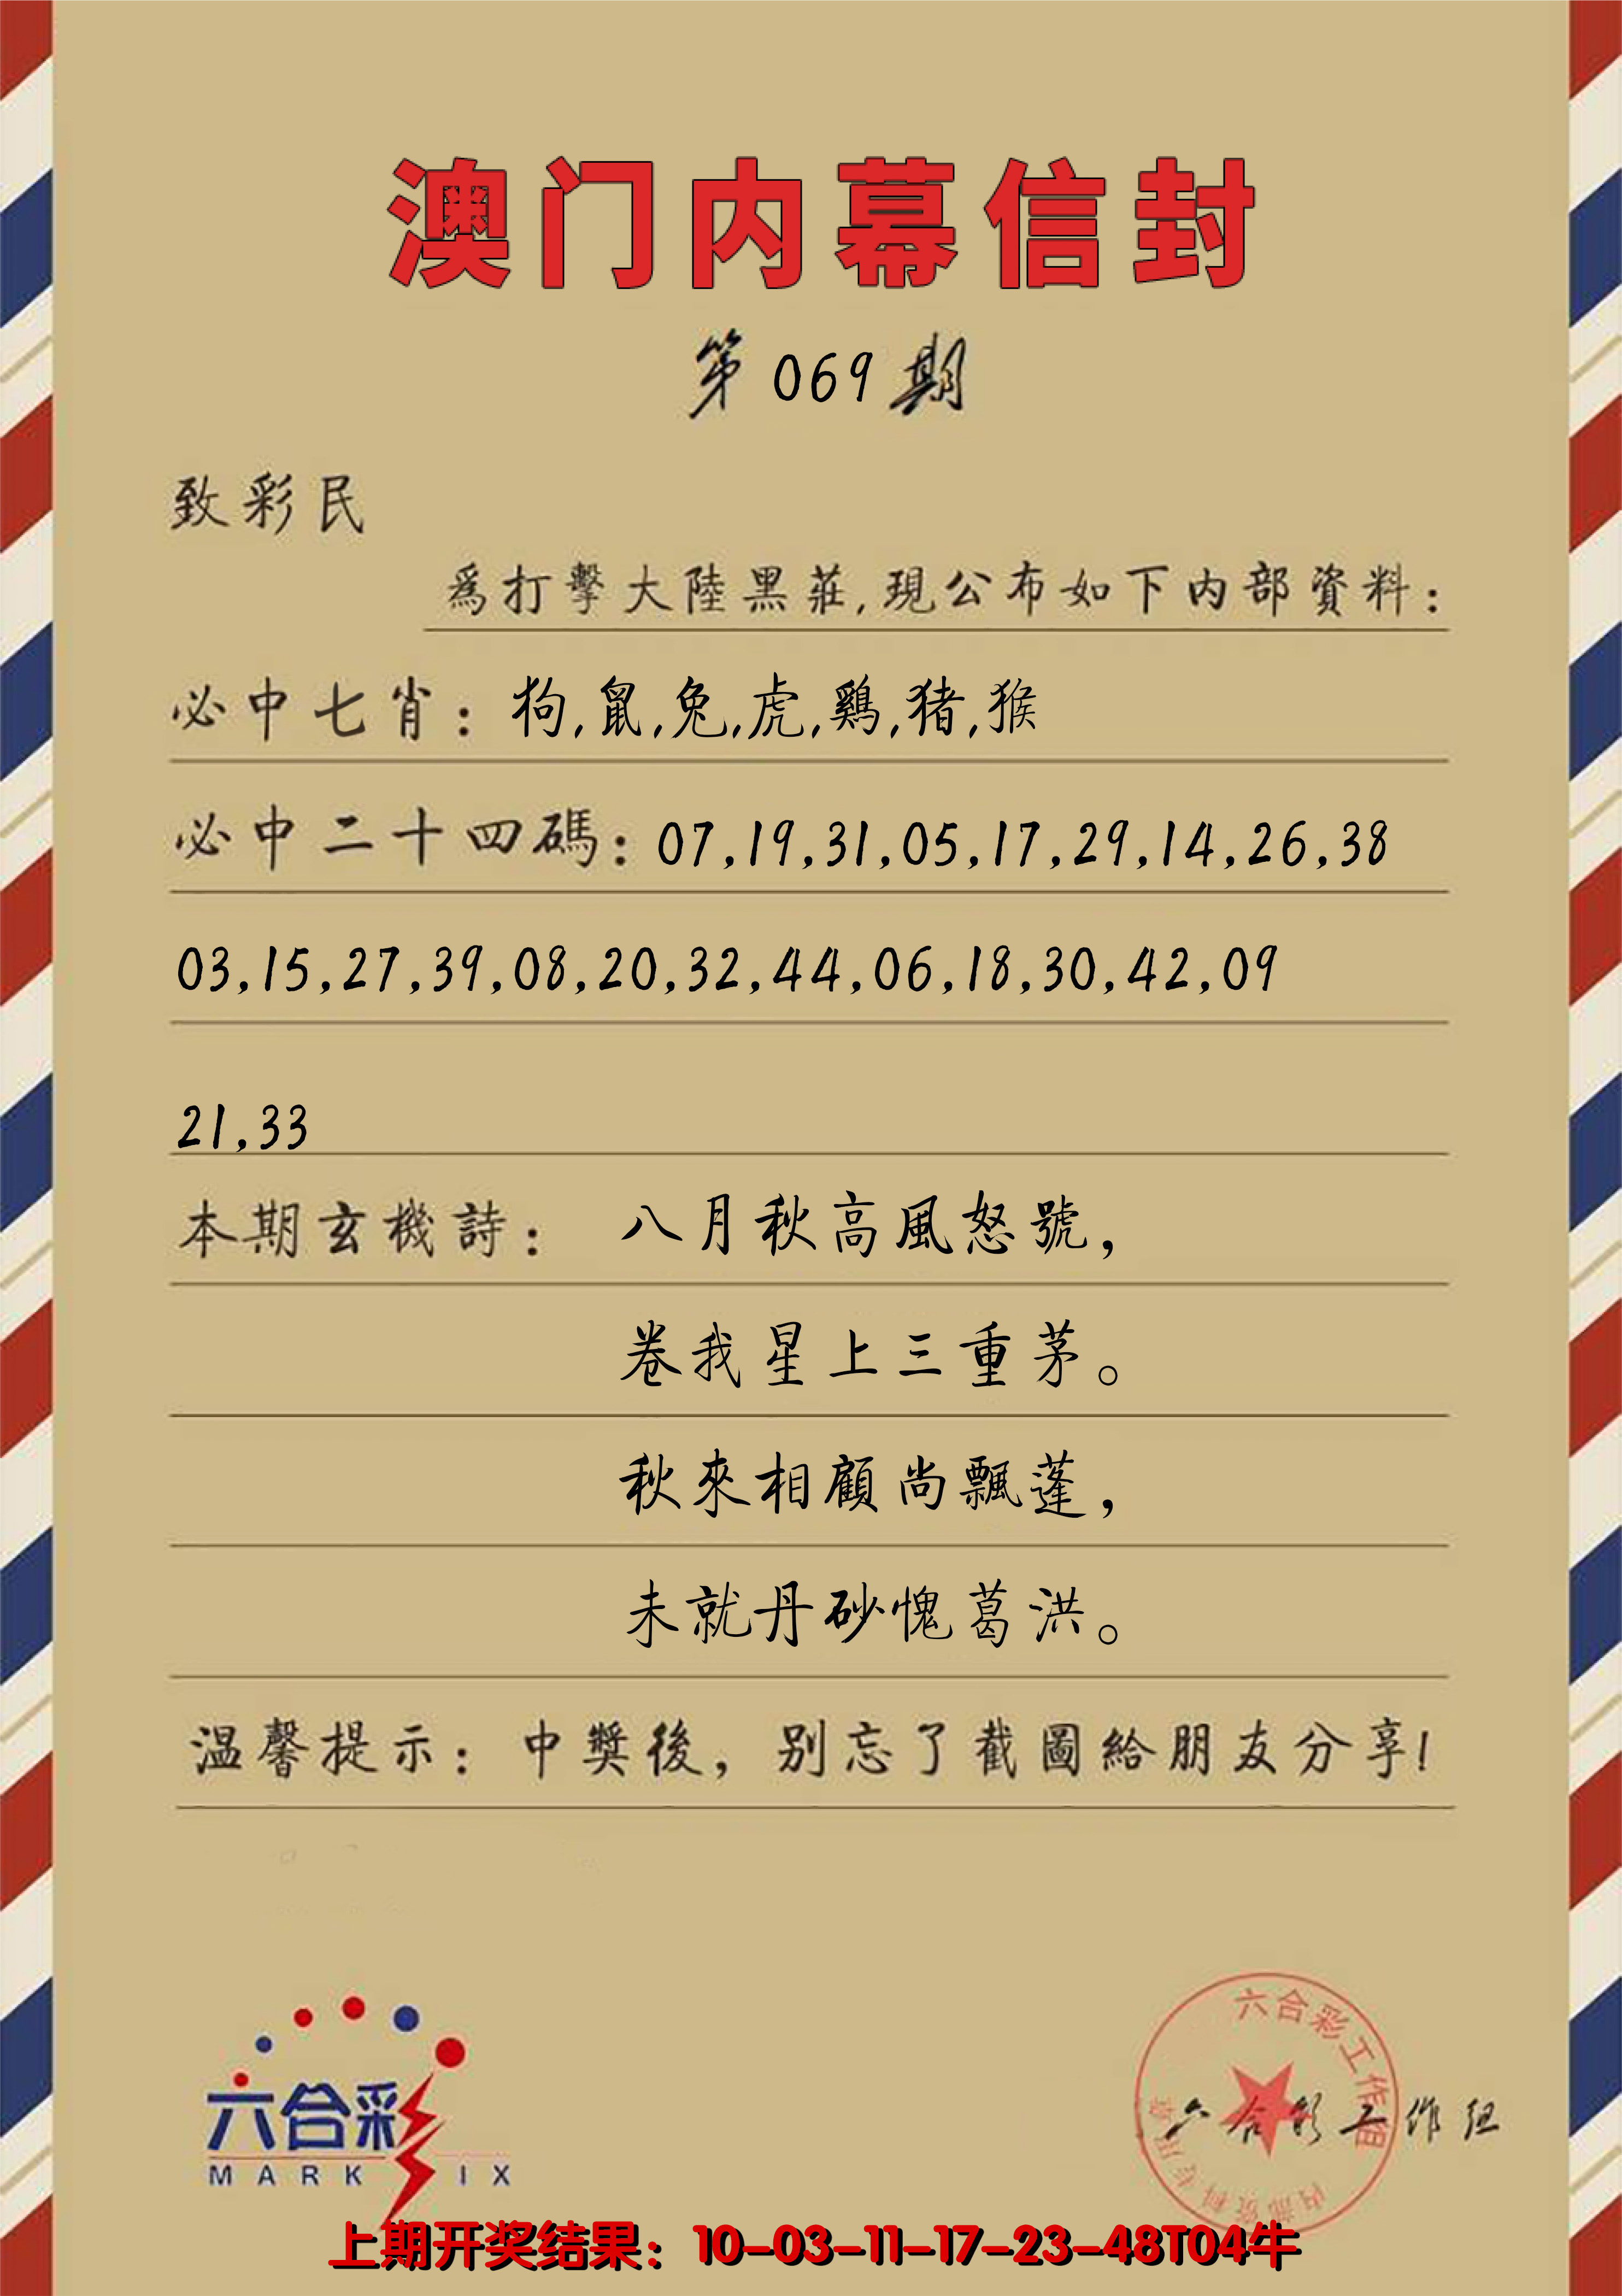 澳门内幕信封
第069期
致彩民
爲打擊大陸黑莊,現公布如下内部資料:
必中七肖:狗,鼠,兔,虎,鷄,猪,猴
必中二十四碼:07,19,31,05,17,29,14,26,38
03,15,27,39,08,20,32,44,06,18,30,42,09
21,33
本期玄機詩: 八月秋高風怒號,
卷我星上三重茅。
秋來相顧尚飄蓬,
未就丹砂愧葛洪。
温馨提示:中獎後,别忘了截圖給朋友分享!
六合彩
MARK IX
六合彩工作组
内部资料专用章
六合彩工作组
上期开奖结果:10-03-11-17-23-48T04牛